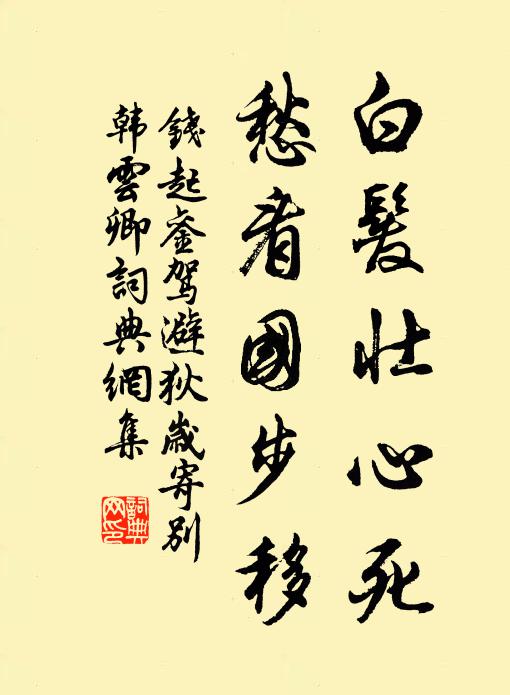 白髮壯心死
愁看國步移
錢起銮駕避狄歲寄别
韓雲卿詞典網集
詞典
网印